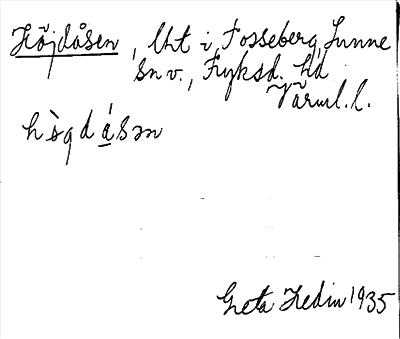 Höjdåsen, lht i Fosseberg, Sunne
sn v., Fryksd. hd
Värml. l.
hògdásən
Greta Hedin 1935